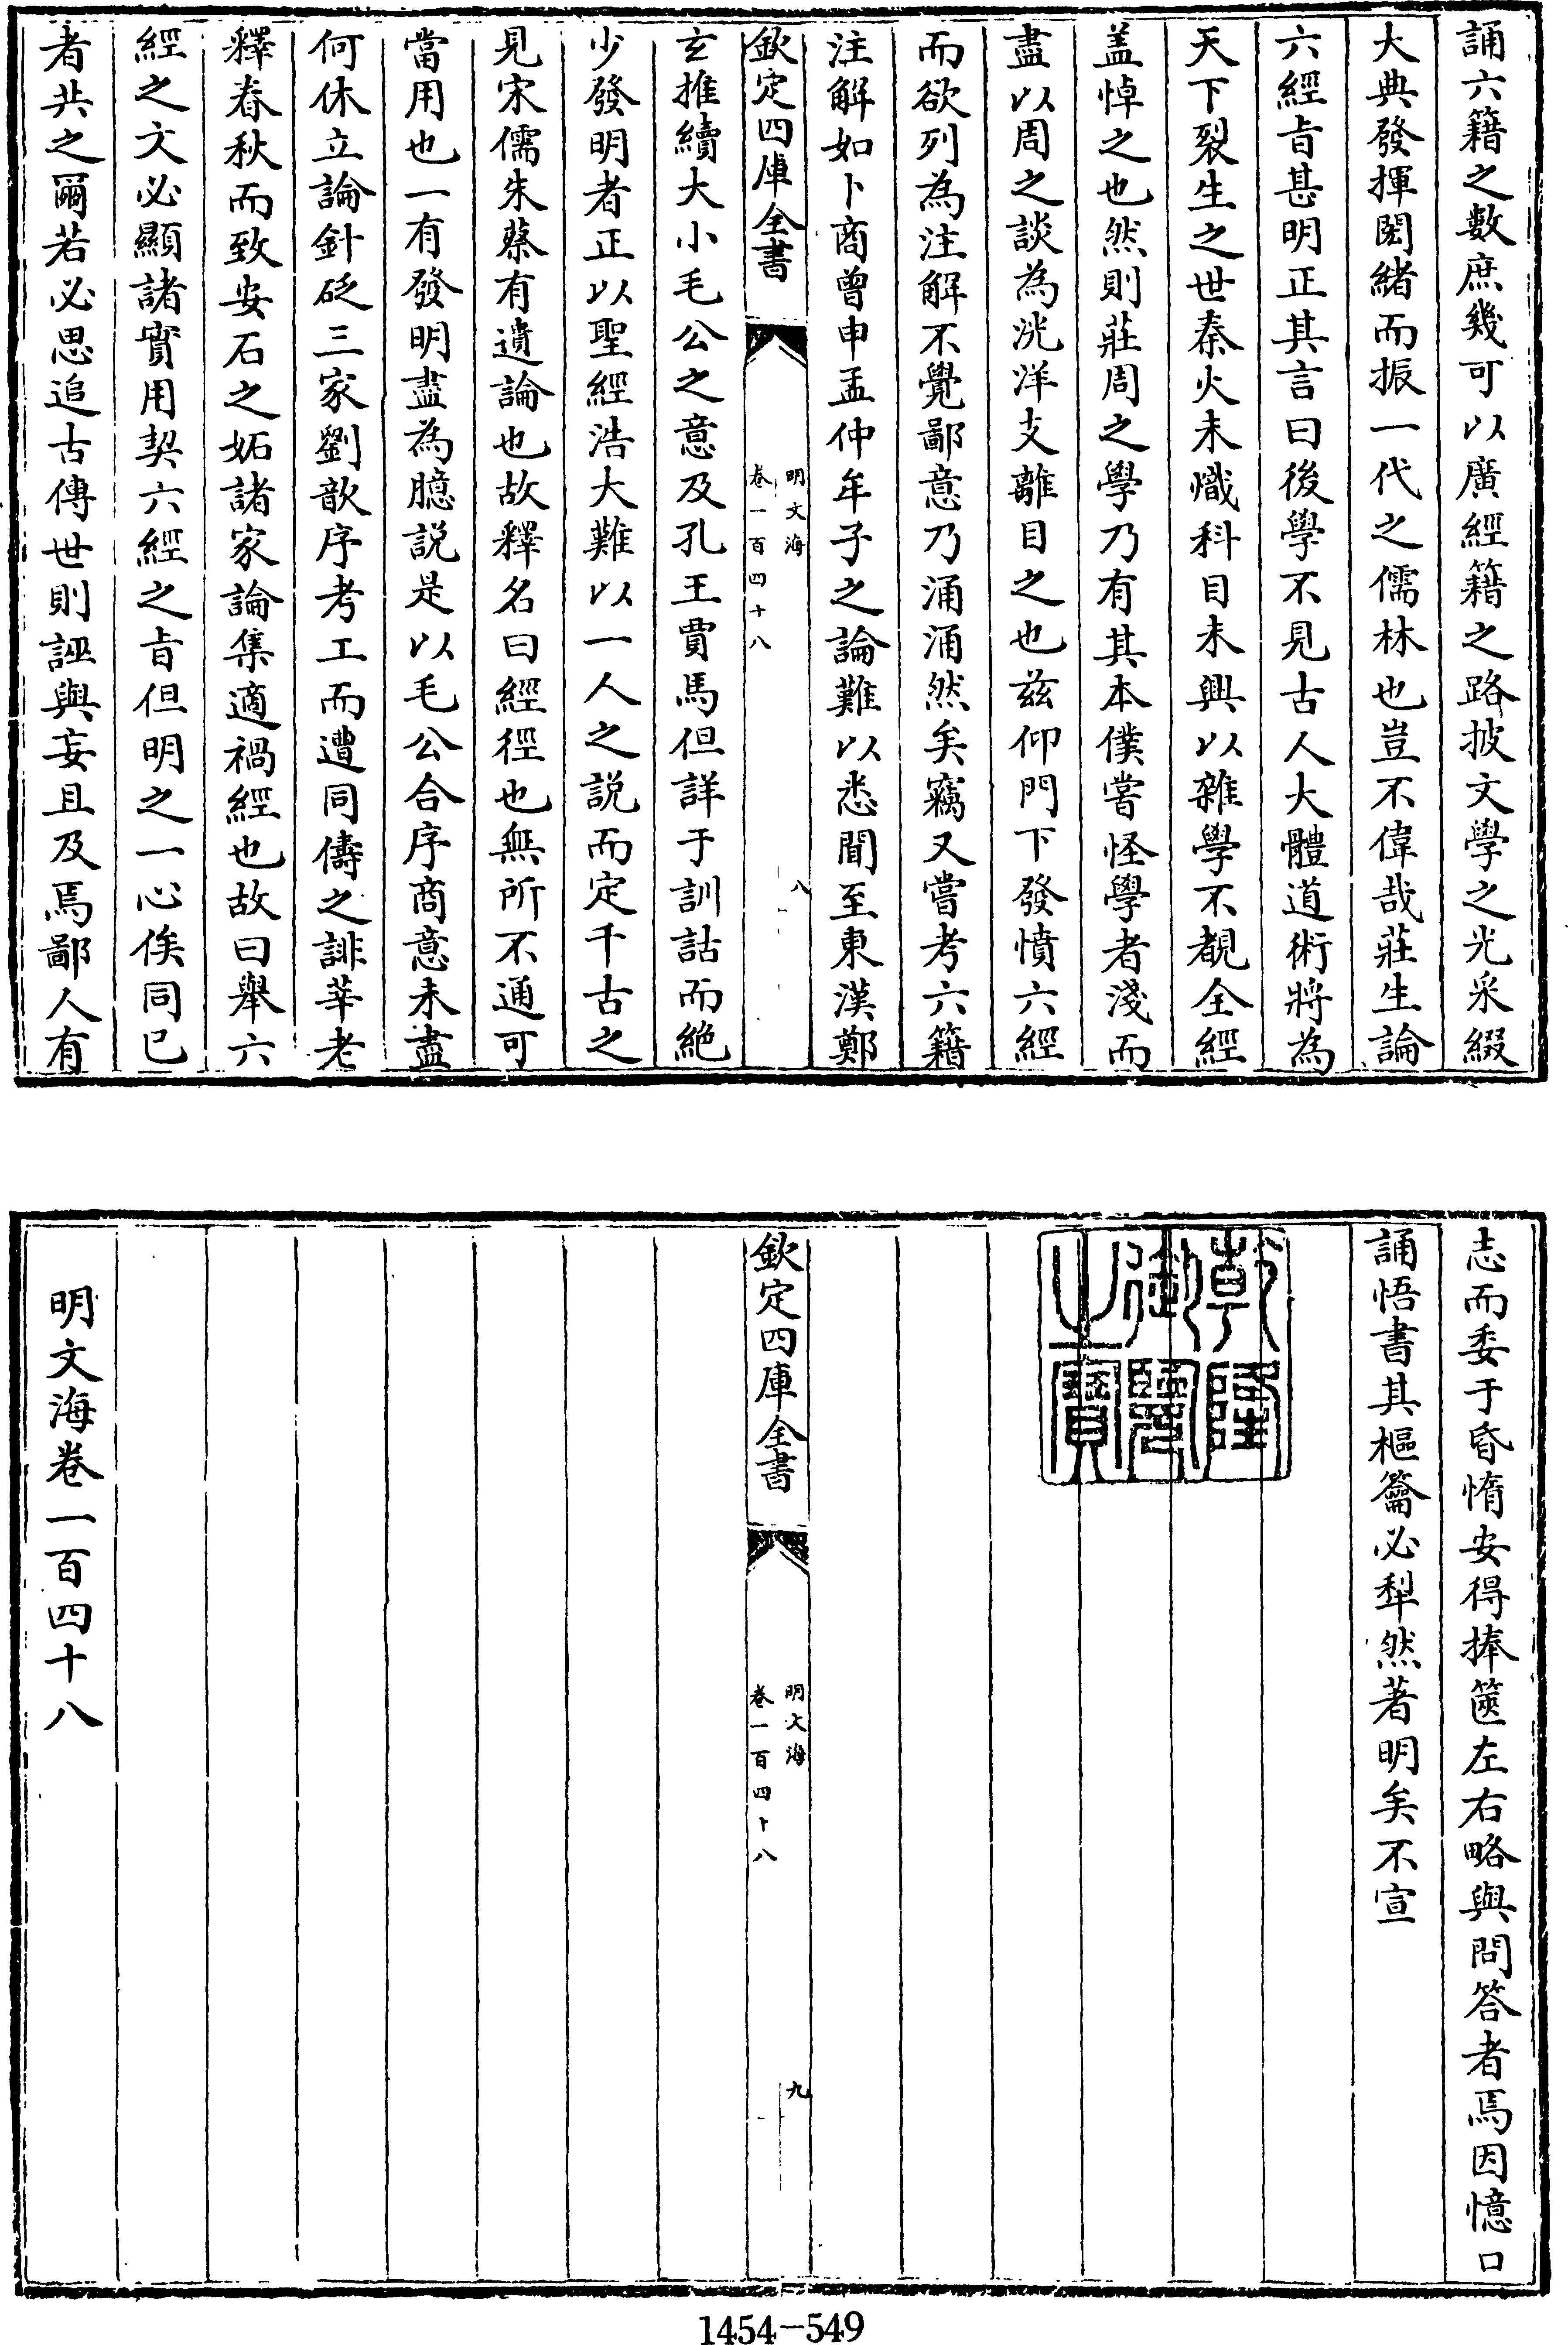 誦六籍之數庶幾可以廣經籍之路披文學之光采綴
大典發揮閎緒而振一代之儒林也豈不偉哉莊生論
六經旨甚明正其言曰後學不見古人大體道術將為
天下裂生之世秦火未熾科目未興以雜學不覩全經
盖悼之也然則莊周之學乃有其本僕嘗怪學者淺而
盡以周之談為洸洋支離目之也兹仰門下發憤六經
而欲列為注解不覺鄙意乃涌涌然矣竊又嘗考六籍
注解如卜商曾申孟仲牟子之論難以悉聞至東漢鄭
欽定四庫全書
明文海
卷一百四十八
八
玄推續大小毛公之意及孔王賈馬但詳于訓詁而絶
少發明者正以聖經浩大難以一人之説而定千古之
見宋儒朱蔡有遺論也故釋名曰經徑也無所不通可
當用也一有發明盡為臆説是以毛公合序商意未盡
何休立論針砭三家劉歆序考工而遭同儔之誹莘老
釋春秋而致安石之妬諸家論集適禍經也故曰舉六
經之文必顯諸實用契六經之旨但明之一心俟同已
者共之爾若必思追古傳世則誣與妄且及焉鄙人有
志而委于昏惰安得捧篋左右略與問答者焉因憶口
誦悟書其樞籥必犁然著明矣不宣
乾隆御覽之寶
欽定四庫全書
明文海
卷一百四十八
九
明文海卷一百四十八
1454-549